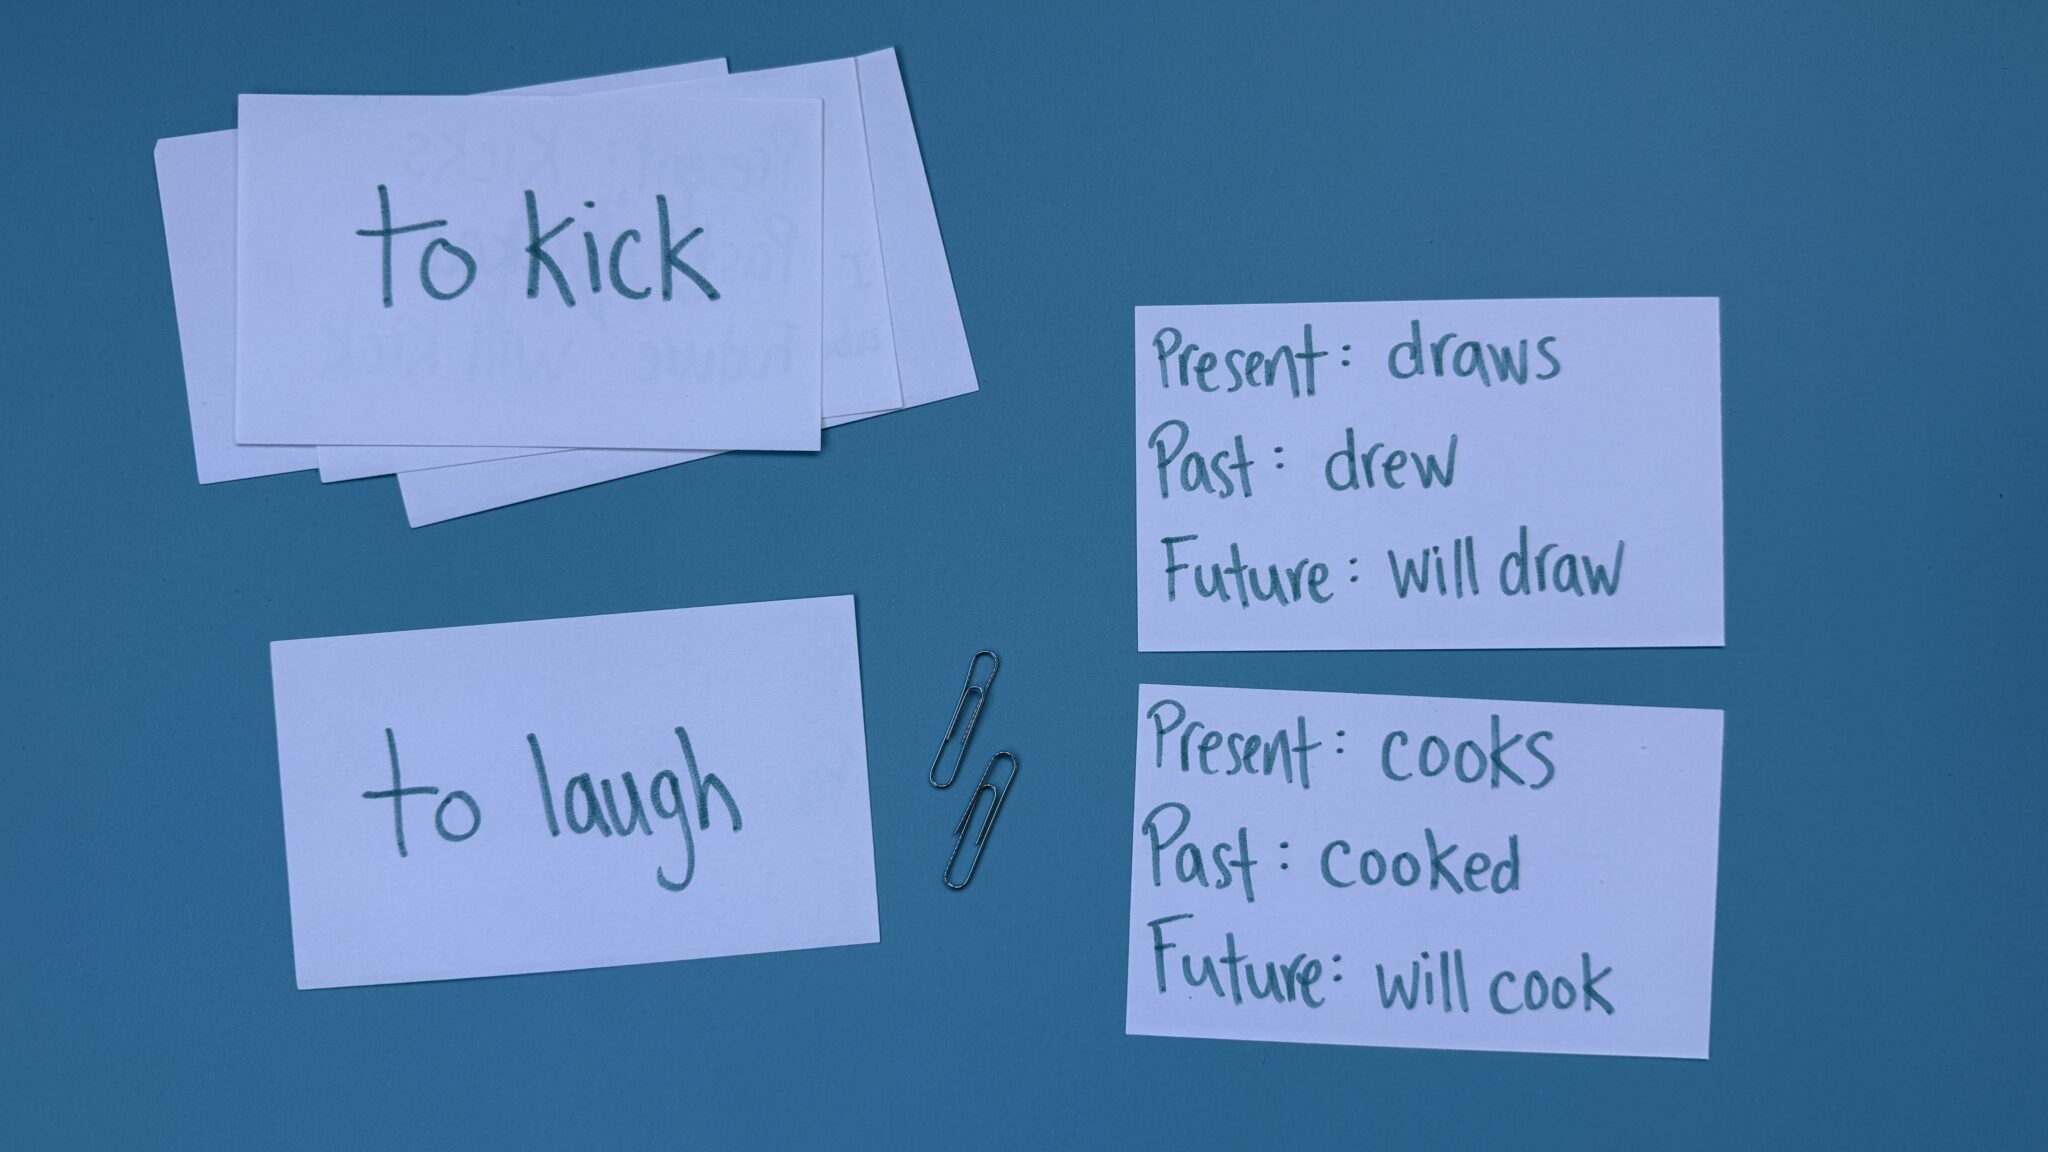 to kick
to laugh
Present: draws
Past: drew
Future: will draw
Present: cooks
Past: cooked
Future: will cook